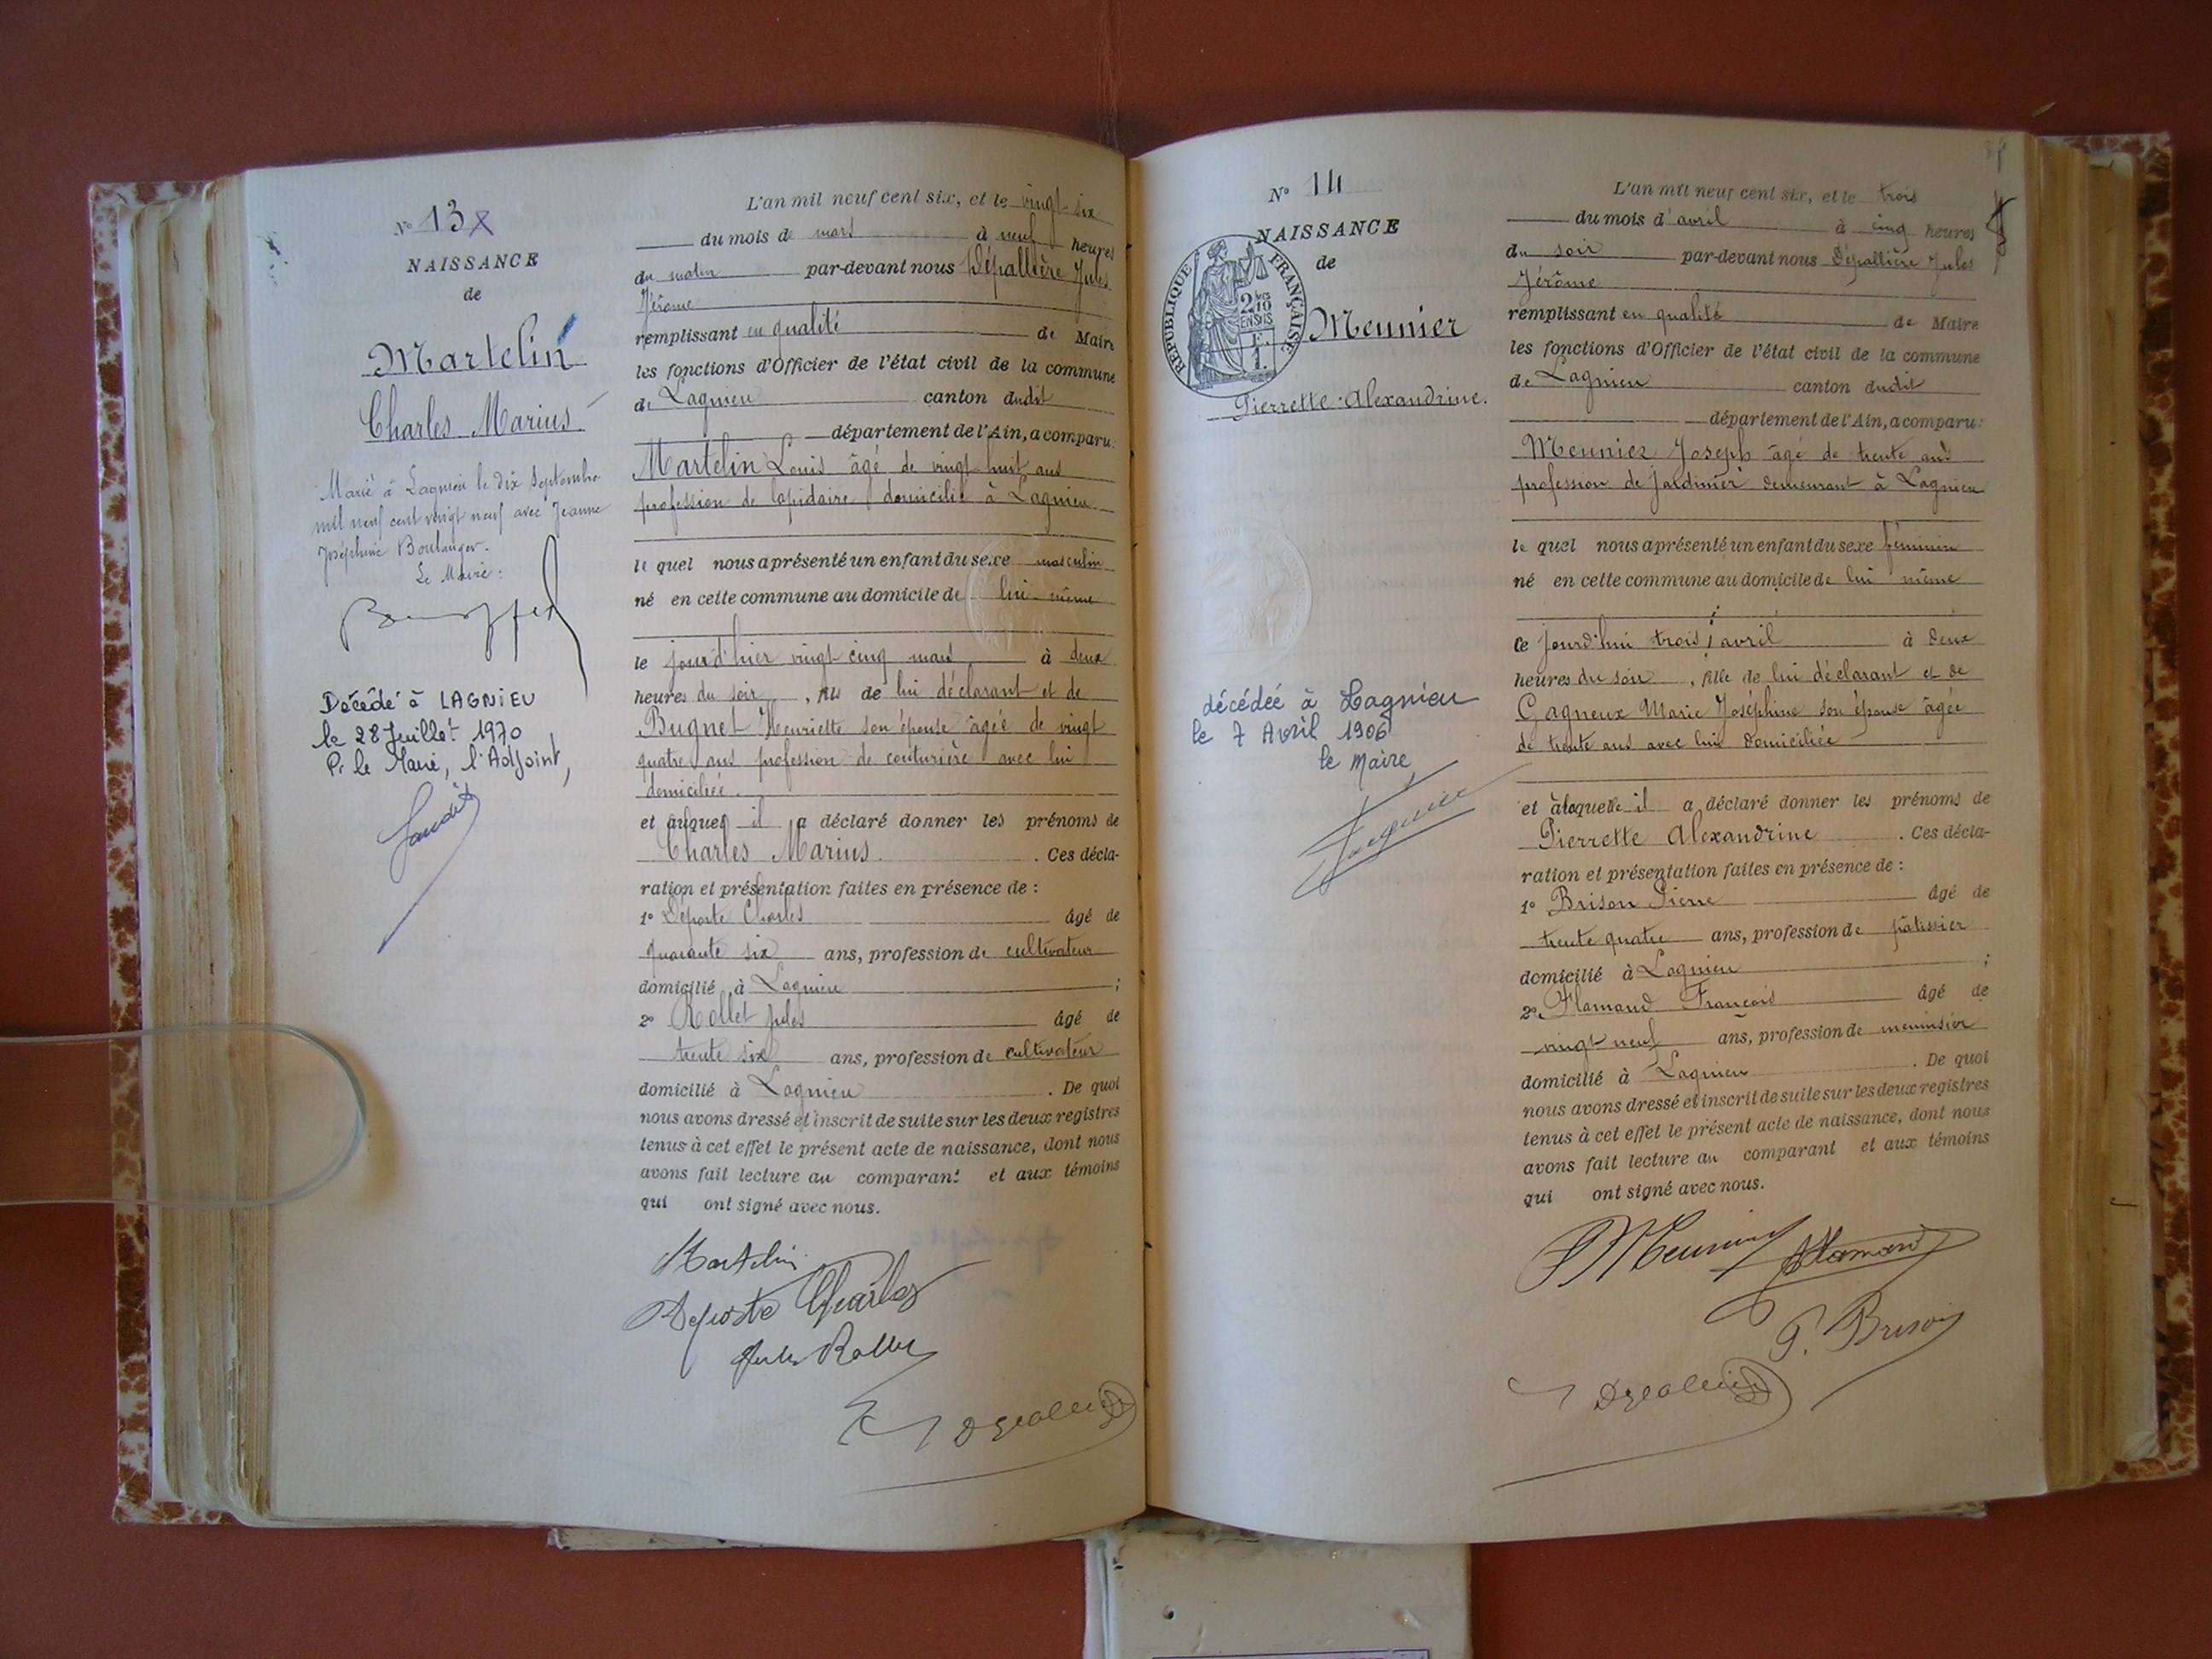 N° 13
NAISSANCE
de
Martelin
Charles Marius
Marié à Lagnieu le dix Septembre
mil neuf cent vingt neuf avec Jeanne
Joséphine Boulanger.
Le Maire:
Décédé à LAGNIEU
le 28 Juillet 1970
Pr le Maire, l'Adjoint,
L'an mil neuf cent six, et le vingt six
du mois de mars à neuf heures
du matin par-devant nous Dépallière Jules
Jérôme
remplissant en qualité de Maire
les fonctions d'Officier de l'état civil de la commune
de Lagnieu canton dudit
département de l'Ain, a comparu:
Martelin Louis âgé de vingt huit ans
profession de lapidaire domicilié à Lagnieu
le quel nous a présenté un enfant du sexe masculin
né en cette commune au domicile de lui même
le jourd'hier vingt cinq mars à deux
heures du soir, fils de lui déclarant et de
Bugnet Henriette son épouse âgée de vingt
quatre ans profession de couturière avec lui
domiciliée.
et auquel il a déclaré donner les prénoms de
Charles Marius. Ces décla-
ration et présentation faites en présence de :
1° Déporte Charles âgé de
quarante six ans, profession de cultivateur
domicilié à Lagnieu ;
2° Rollet Jules âgé de
trente six ans, profession de cultivateur
domicilié à Lagnieu. De quoi
nous avons dressé et inscrit de suite sur les deux registres
tenus à cet effet le présent acte de naissance, dont nous
avons fait lecture au comparant et aux témoins
qui ont signé avec nous.
Martelin
Déporte Charles
Jules Rollet
N° 14
NAISSANCE
de
REPUBLIQUE FRANÇAISE
2/10
EN SUS
1 F.
Meunier
Pierrette Alexandrine.
décédée à Lagnieu
le 7 Avril 1906
le Maire
L'an mil neuf cent six, et le trois
du mois d'avril à cinq heures
du soir par-devant nous Dépallière Jules
Jérôme
remplissant en qualité de Maire
les fonctions d'Officier de l'état civil de la commune
de Lagnieu canton dudit
département de l'Ain, a comparu:
Meunier Joseph âgé de trente ans
profession de jardinier demeurant à Lagnieu
le quel nous a présenté un enfant du sexe féminin
né en cette commune au domicile de lui même
ce jourd'hui trois avril à deux
heures du soir, fille de lui déclarant et de
Gagneux Marie Joséphine son épouse âgée
de trente ans avec lui domiciliée
et à laquelle il a déclaré donner les prénoms de
Pierrette Alexandrine. Ces décla-
ration et présentation faites en présence de :
1° Brison Pierre âgé de
trente quatre ans, profession de pâtissier
domicilié à Lagnieu ;
2° Flamand François âgé de
vingt neuf ans, profession de menuisier
domicilié à Lagnieu. De quoi
nous avons dressé et inscrit de suite sur les deux registres
tenus à cet effet le présent acte de naissance, dont nous
avons fait lecture au comparant et aux témoins
qui ont signé avec nous.
J Meunier Flamand
P. Brison